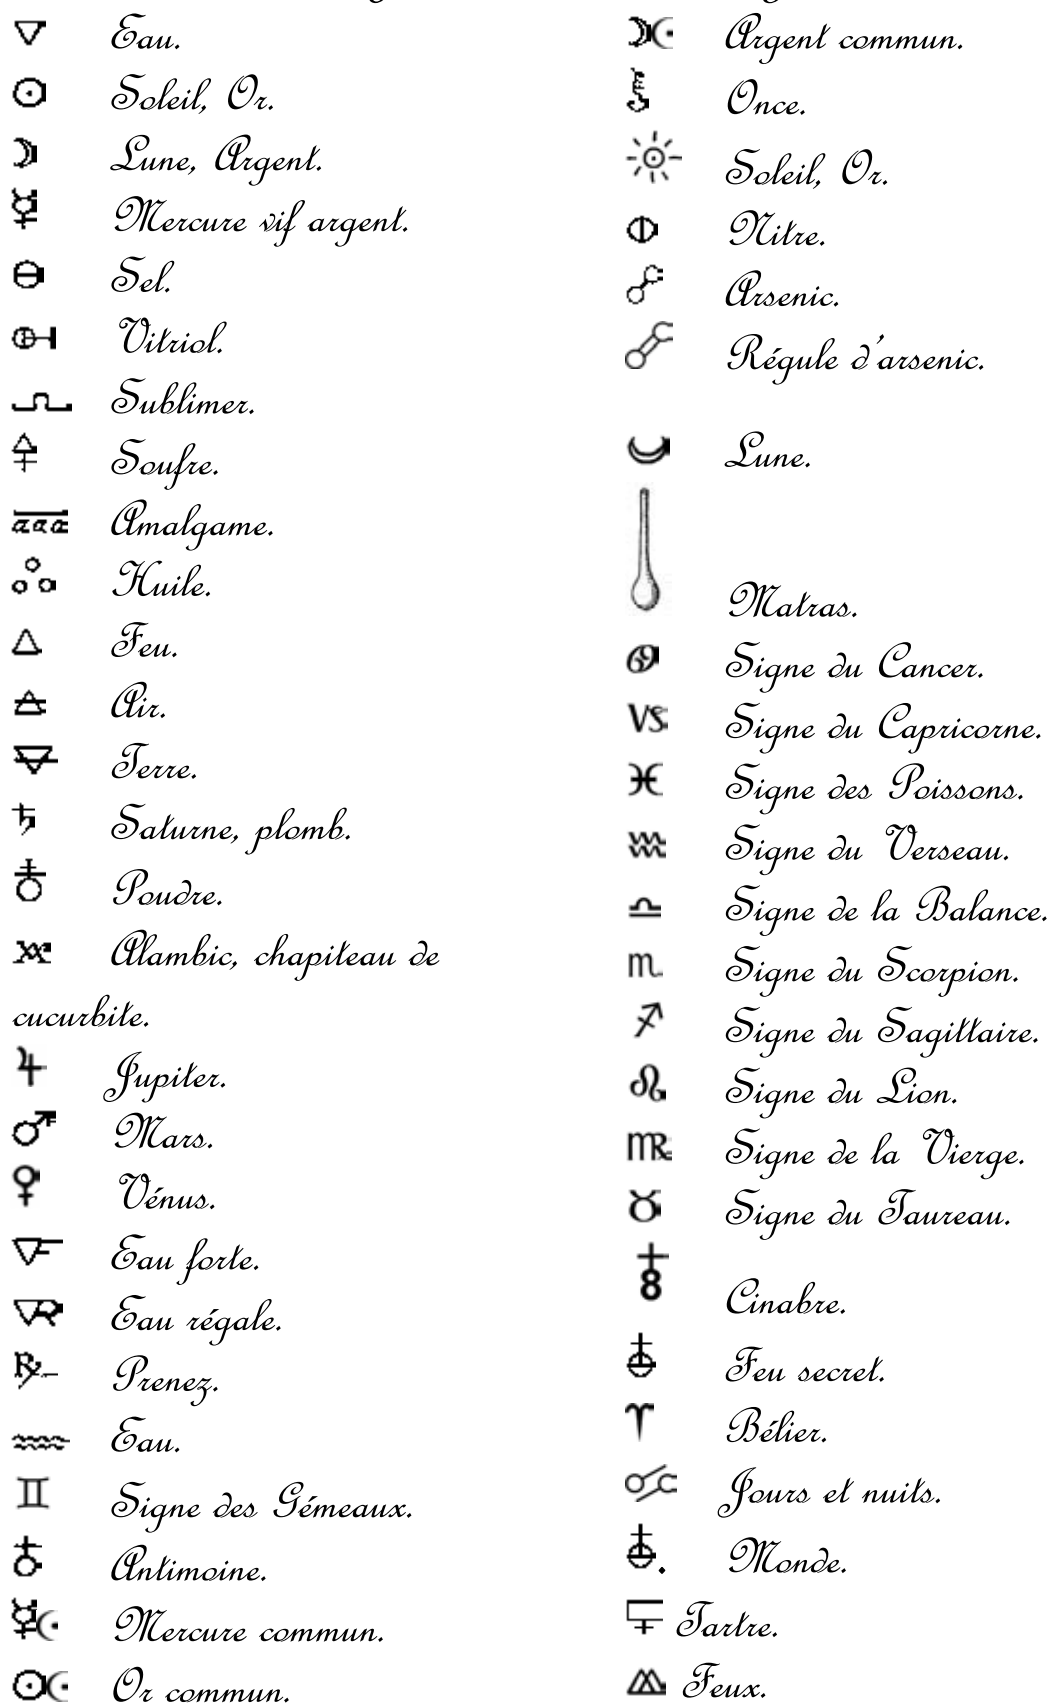 Eau.
Soleil, Or.
Lune, Argent.
Mercure vif argent.
Sel.
Vitriol.
Sublimer.
Soufre.
aaa Amalgame.
Huile.
Feu.
Air.
Terre.
Saturne, plomb.
Poudre.
Alambic, chapiteau de
cucurbite.
Jupiter.
Mars.
Vénus.
Eau forte.
Eau régale.
Prenez.
Eau.
Signe des Gémeaux.
Antimoine.
Mercure commun.
Or commun.
Argent commun.
Once.
Soleil, Or.
Nitre.
Arsenic.
Régule d'arsenic.
Lune.
Matras.
Signe du Cancer.
Signe du Capricorne.
Signe des Poissons.
Signe du Verseau.
Signe de la Balance.
Signe du Scorpion.
Signe du Sagittaire.
Signe du Lion.
Signe de la Vierge.
Signe du Taureau.
Cinabre.
Feu secret.
Bélier.
Jours et nuits.
Monde.
Tartre.
Feux.